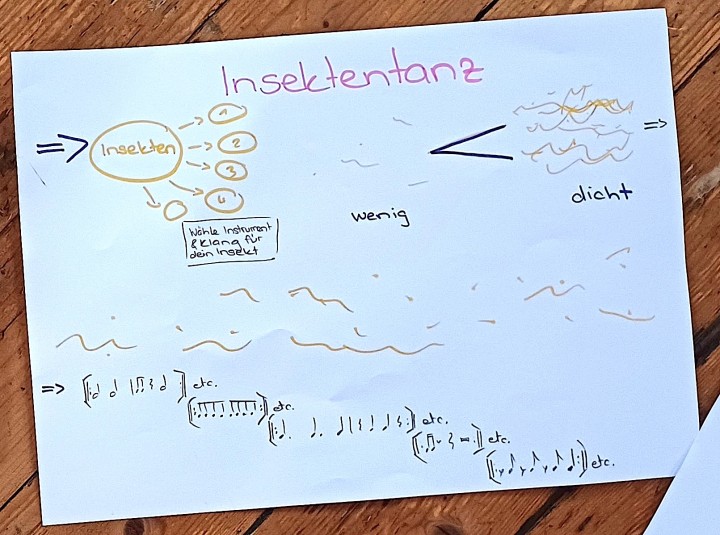 Insektentanz
=> Insekten
1
2
3
4
Wähle Instrument
& Klang für
dein Insekt
wenig
<
dicht
=>
=>
etc.
etc.
etc.
etc.
etc.